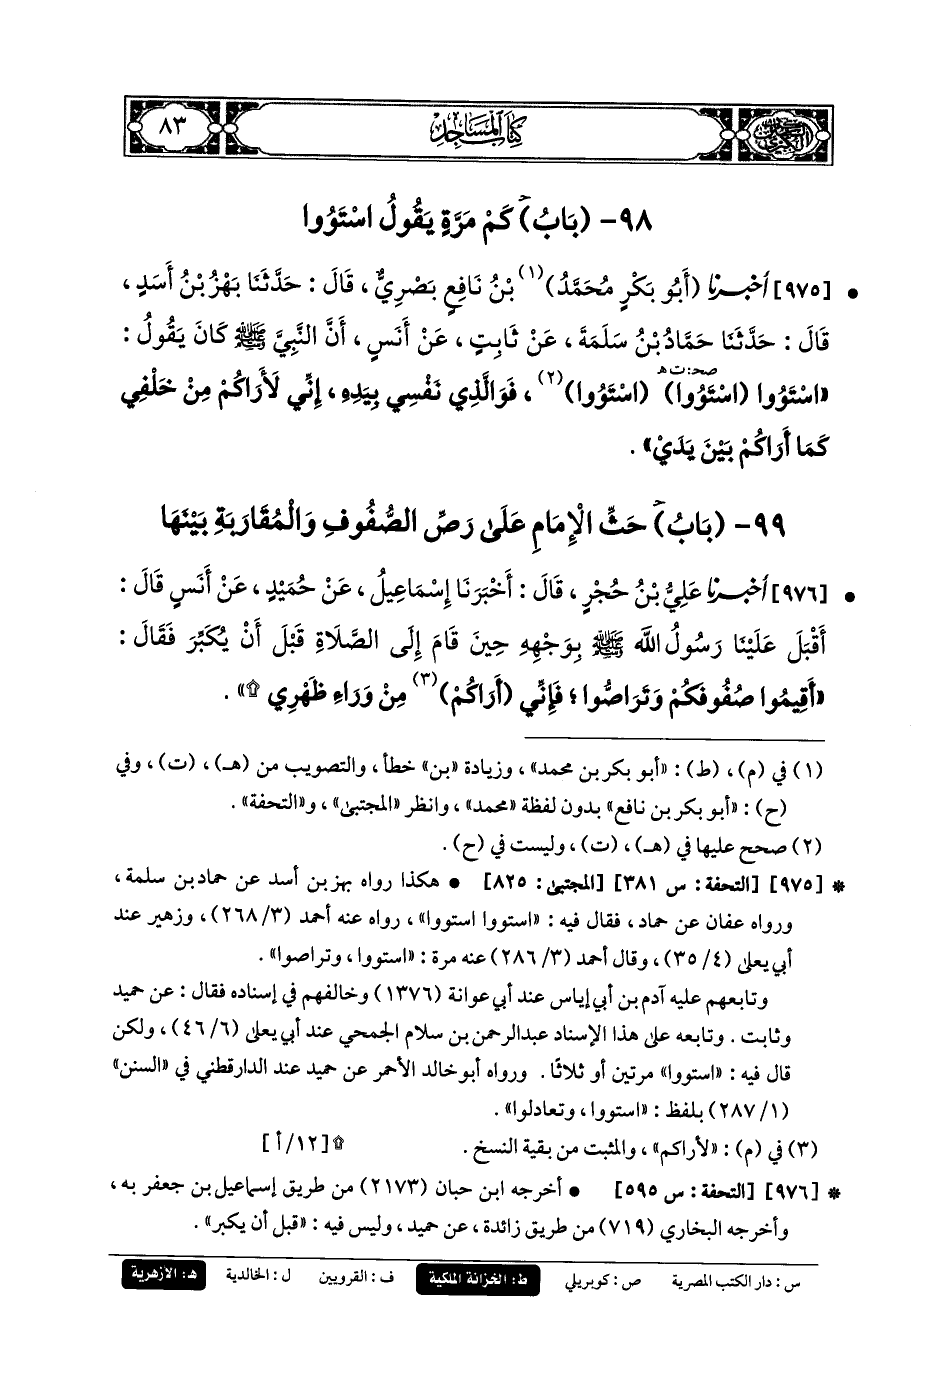 كتاب المساجد
٨٣
٩٨- (بَابُ) كَمْ مَرَّةٍ يَقُولُ اسْتَوُوا
• [٩٧٥] أخبرنا (أَبُو بَكْرٍ مُحَمَّدُ)(١) بْنُ نَافِعٍ بَصْرِيٌّ، قَالَ: حَدَّثَنَا بَهْزُ بْنُ أَسَدٍ،
قَالَ: حَدَّثَنَا حَمَّادُ بْنُ سَلَمَةَ، عَنْ ثَابِتٍ، عَنْ أَنَسٍ، أَنَّ النَّبِيَّ ﷺ كَانَ يَقُولُ:
صحـ: ت هـ
«اسْتَوُوا (اسْتَوُوا) (اسْتَوُوا)(٢)، فَوَالَّذِي نَفْسِي بِيَدِهِ، إِنِّي لَأَرَاكُمْ مِنْ خَلْفِي
كَمَا أَرَاكُمْ بَيْنَ يَدَيْ».
٩٩- (بَابُ) حَثِّ الْإِمَامِ عَلَىٰ رَصِّ الصُّفُوفِ وَالْمُقَارَبَةِ بَيْنَهَا
• [٩٧٦] أخبرنا عَلِيُّ بْنُ حُجْرٍ، قَالَ: أَخْبَرَنَا إِسْمَاعِيلُ، عَنْ حُمَيْدٍ، عَنْ أَنَسٍ قَالَ:
أَقْبَلَ عَلَيْنَا رَسُولُ اللَّه ﷺ بِوَجْهِهِ حِينَ قَامَ إِلَى الصَّلَاةِ قَبْلَ أَنْ يُكَبِّرَ فَقَالَ:
«أَقِيمُوا صُفُوفَكُمْ وَتَرَاصُّوا؛ فَإِنِّي (أَرَاكُمْ)(٣) مِنْ وَرَاءِ ظَهْرِي ۩».
(١) في (م)، (ط): «أبو بكر بن محمد»، وزيادة «بن» خطأ، والتصويب من (هـ)، (ت)، وفي
(ح): «أبو بكر بن نافع» بدون لفظة «محمد»، وانظر «المجتبى»، و«التحفة».
(٢) صحح عليها في (هـ)، (ت)، وليست في (ح).
* [٩٧٥] [التحفة: س ٣٨١] [المجتبى: ٨٢٥] • هكذا رواه بهز بن أسد عن حماد بن سلمة،
ورواه عفان عن حماد، فقال فيه: «استووا استووا»، رواه عنه أحمد (٣/ ٢٦٨)، وزهير عند
أبي يعلى (٤/ ٣٥)، وقال أحمد (٣/ ٢٨٦) عنه مرة: «استووا، وتراصوا».
وتابعهم عليه آدم بن أبي إياس عند أبي عوانة (١٣٧٦) وخالفهم في إسناده فقال: عن حميد
وثابت. وتابعه على هذا الإسناد عبدالرحمن بن سلام الجمحي عند أبي يعلى (٦/ ٤٦)، ولكن
قال فيه: «استووا» مرتين أو ثلاثا. ورواه أبو خالد الأحمر عن حميد عند الدارقطني في «السنن»
(١/ ٢٨٧) بلفظ: «استووا، وتعادلوا».
(٣) في (م): «لأراكم»، والمثبت من بقية النسخ. ۩ [١٢/أ]
* [٩٧٦] [التحفة: س ٥٩٥] • أخرجه ابن حبان (٢١٧٣) من طريق إسماعيل بن جعفر به،
وأخرجه البخاري (٧١٩) من طريق زائدة، عن حميد، وليس فيه: «قبل أن يكبر».
س: دار الكتب المصرية ص: كوبريلي ط: الخزانة الملكية ف: القرويين ل: الخالدية هـ: الأزهرية